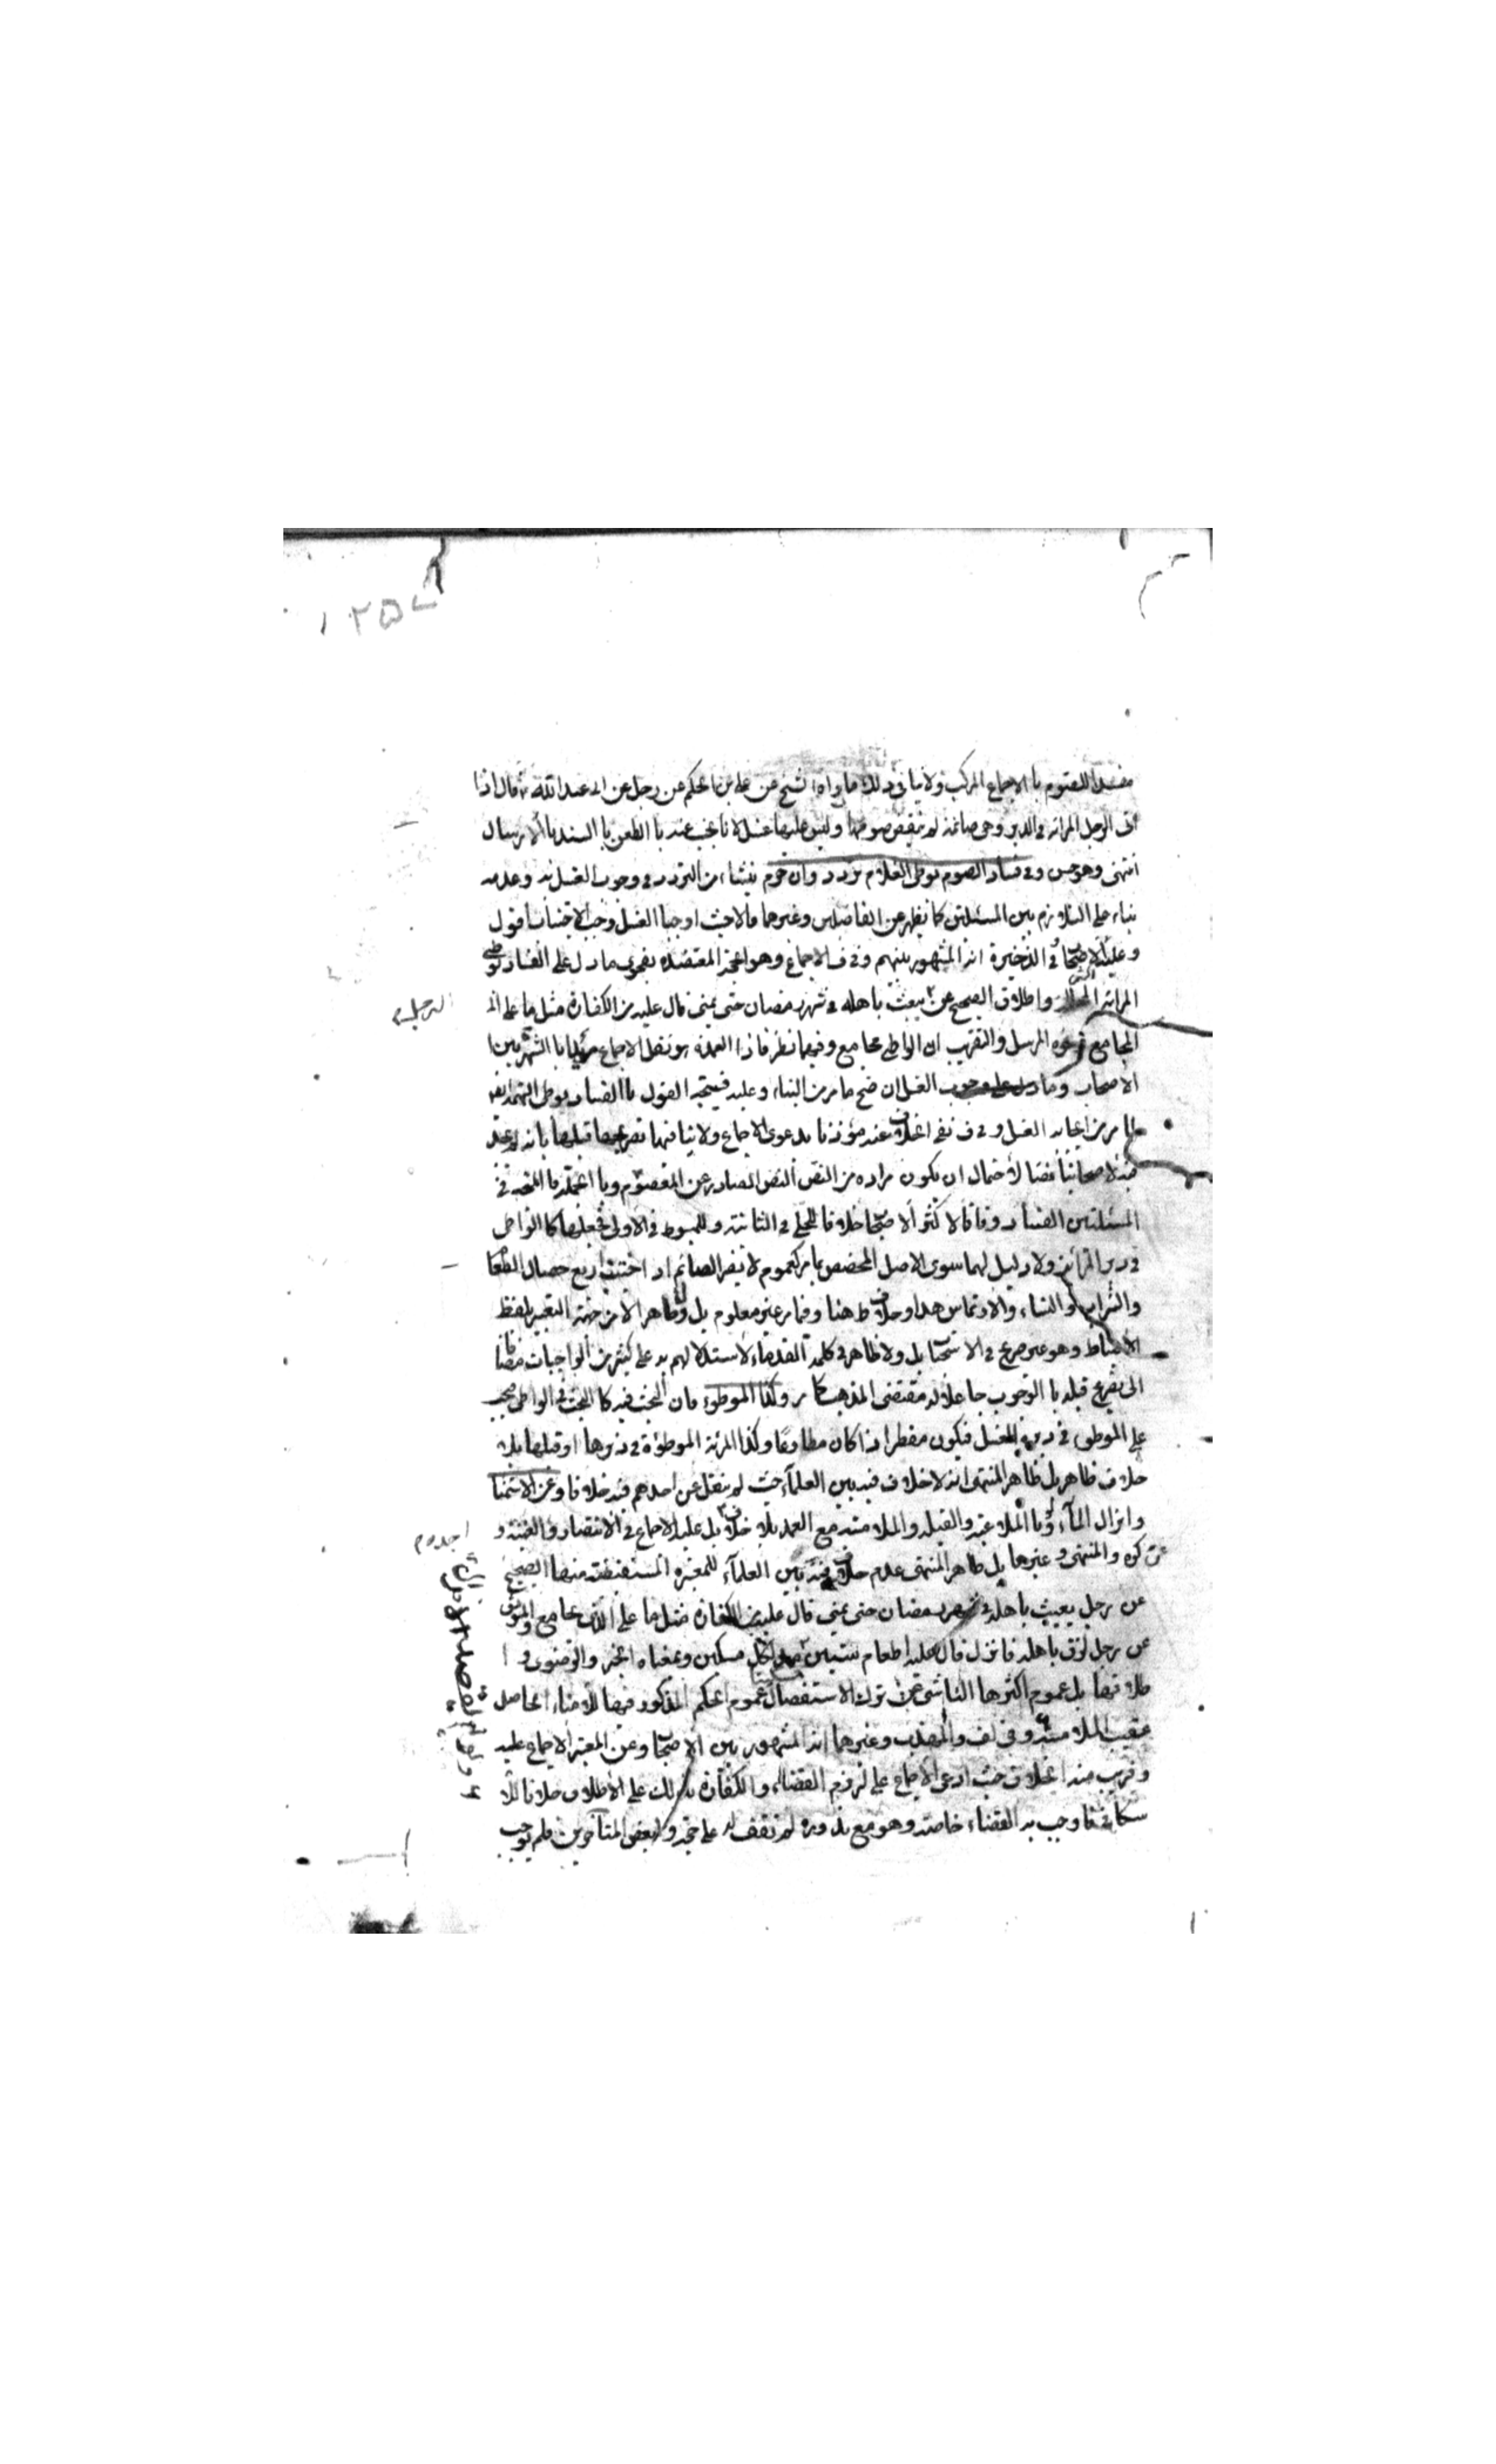 ٢٥٧
مفسدا للصوم بالاجماع المركب ولا ينافى ذلك ما رواه الشيخ عن على بن الحكم عن رجل عن ابى عبد الله قال اذا
اتى الرجل المرائة فى الدبر وهى صائمة لم ينقض صومها وليس عليها غسل لانا نجيب عنه بالطعن بالسند بالارسال
انتهى وهو حسن وفى فساد الصوم بوطى الغلام تردد وان حرم ينشاء من التردد فى وجوب الغسل به وعدمه
بناء على التلازم بين المسئلتين كما يظهر عن الفاضلين وغيرهما فالاحيث اوجبنا الغسل وجب الافساد اقول
وعليه الاصحاب فى الذخيرة انه المشهور بينهم وفى ف الاجماع وهو الحجة المعتضدة بفحوى ما دل على الفساد بوطى
المرائة واطلاق الصحيح عن يعبث باهله فى شهر رمضان حتى يمنى قال عليه من الكفارة مثل ما على
الرجل
المجامع ونحوه المرسل والتقريب ان الواطى مجامع وفيهما نظر فاذا العمدة هو نقل الاجماع بالشهرة بين
الاصحاب وما دل على وجوب الغسل ان صح ما مر من البناء وعليه فيتجه القول بالفساد بوطى البهيمة
لما مر من ايجابه الغسل وفى ف نفى الخلاف عنه مؤذنا بدعوى الاجماع ولا ينافيها تصريحه قبلها بانه لم يجد
فيه لاصحابنا نصا لاحتمال ان يكون مراده من النص النص الصادر عن المعصوم وبالجملة فالمتجه فى
المسئلتين الفساد وفاقا لاكثر الاصحاب خلافا للحلى فى الثانية وللمبسوط فى الاولى فجعلها كالواطى
فى دبر المرائة ولا دليل لهما سوى الاصل المخصص بما مر كعموم لا يضر الصائم اذا اجتنب اربع خصال الطعام
والشراب والنساء والارتماس هذا وخلاف ط هنا وفيما مر غير معلوم بل ولا ظاهر الا من جهة التعبير بلفظ
الاحتياط وهو غير صريح فى الاستحباب بل ولا ظاهر فى كلمة القدماء لاستدلالهم به على كثير من الواجبات مضافا
الى تصريح قبله بالوجوب جاعلا له مقتضى المذهب كما مر وكذا الموطوء فان البحث فيه كالبحث فى الواطى فيجب
على الموطوء فى دبره الغسل فيكون مفطرا اذا كان مطاوعا وكذا المرئة الموطؤة فى دبرها او قبلها بلا
خلاف ظاهر بل ظاهر المنتهى انه لا خلاف فيه بين العلماء حيث لم ينقل عن احدهم فيه خلافا وعن الاستمناء
وانزال الماء ولو بالملاعبة والقبلة والملامسة مع العمد بلا خلاف بل عليه الاجماع فى الانتصار والغنية و
عن كره والمنتهى وغيرها بل ظاهر المنتهى عدم خلاف فيه بين العلماء للمعتبرة المستفيضة منها الصحيح
عن رجل يعبث باهله فى شهر رمضان حتى يمنى قال عليه من الكفارة مثل ما على الذى يجامع والموثق
عن رجل لزق باهله فانزل قال عليه اطعام ستين مسكينا مد لكل مسكين وبمعناه الخبر والرضوى و
طلاقها بل عموم اكثرها الناشى عن ترك الاستفصال عموم الحكم المذكور فيها للامناء الحاصل
عقيب الملامسة وفى لف والمهذب وغيرهما انه المشهور بين الاصحاب وعن المعتبر الاجماع عليه
وقريب منه الخلاف حيث ادعى الاجماع على لزوم القضاء والكفارة بذلك على الاطلاق خلافا للا
سكافى فاوجب به القضاء خاصة وهو مع ندوره لم نقف له على حجة ولبعض المتأخرين فلم يوجب